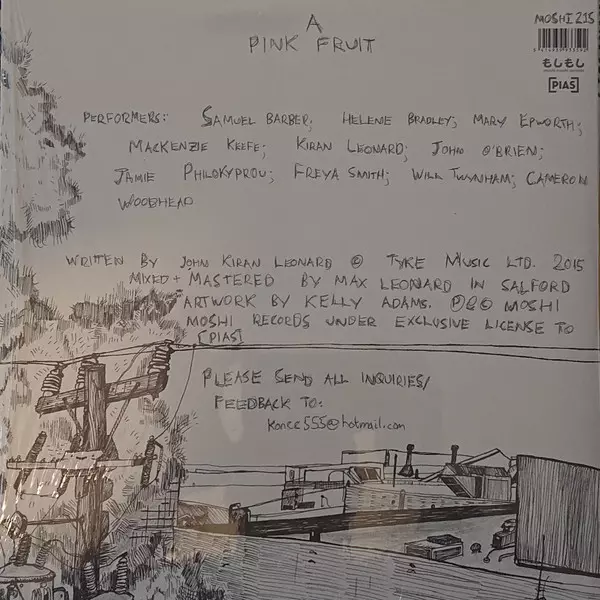 A
PINK FRUIT
MOSHI 215
もしもし
[PIAS]
PERFORMERS: SAMUEL BARBER; HELENE BRADLEY; MARY EPWORTH;
MACKENZIE KEEFE; KIRAN LEONARD; JOHN O'BRIEN;
JAMIE PHILOKYPROU; FREYA SMITH; WILL TWYNHAM; CAMERON
WOODHEAD
WRITTEN BY JOHN KIRAN LEONARD © TYKE MUSIC LTD. 2015
MIXED + MASTERED BY MAX LEONARD IN SALFORD
ARTWORK BY KELLY ADAMS. ℗&© MOSHI
MOSHI RECORDS UNDER EXCLUSIVE LICENSE TO
[PIAS]
PLEASE SEND ALL INQUIRIES/
FEEDBACK TO:
Konce555@hotmail.com